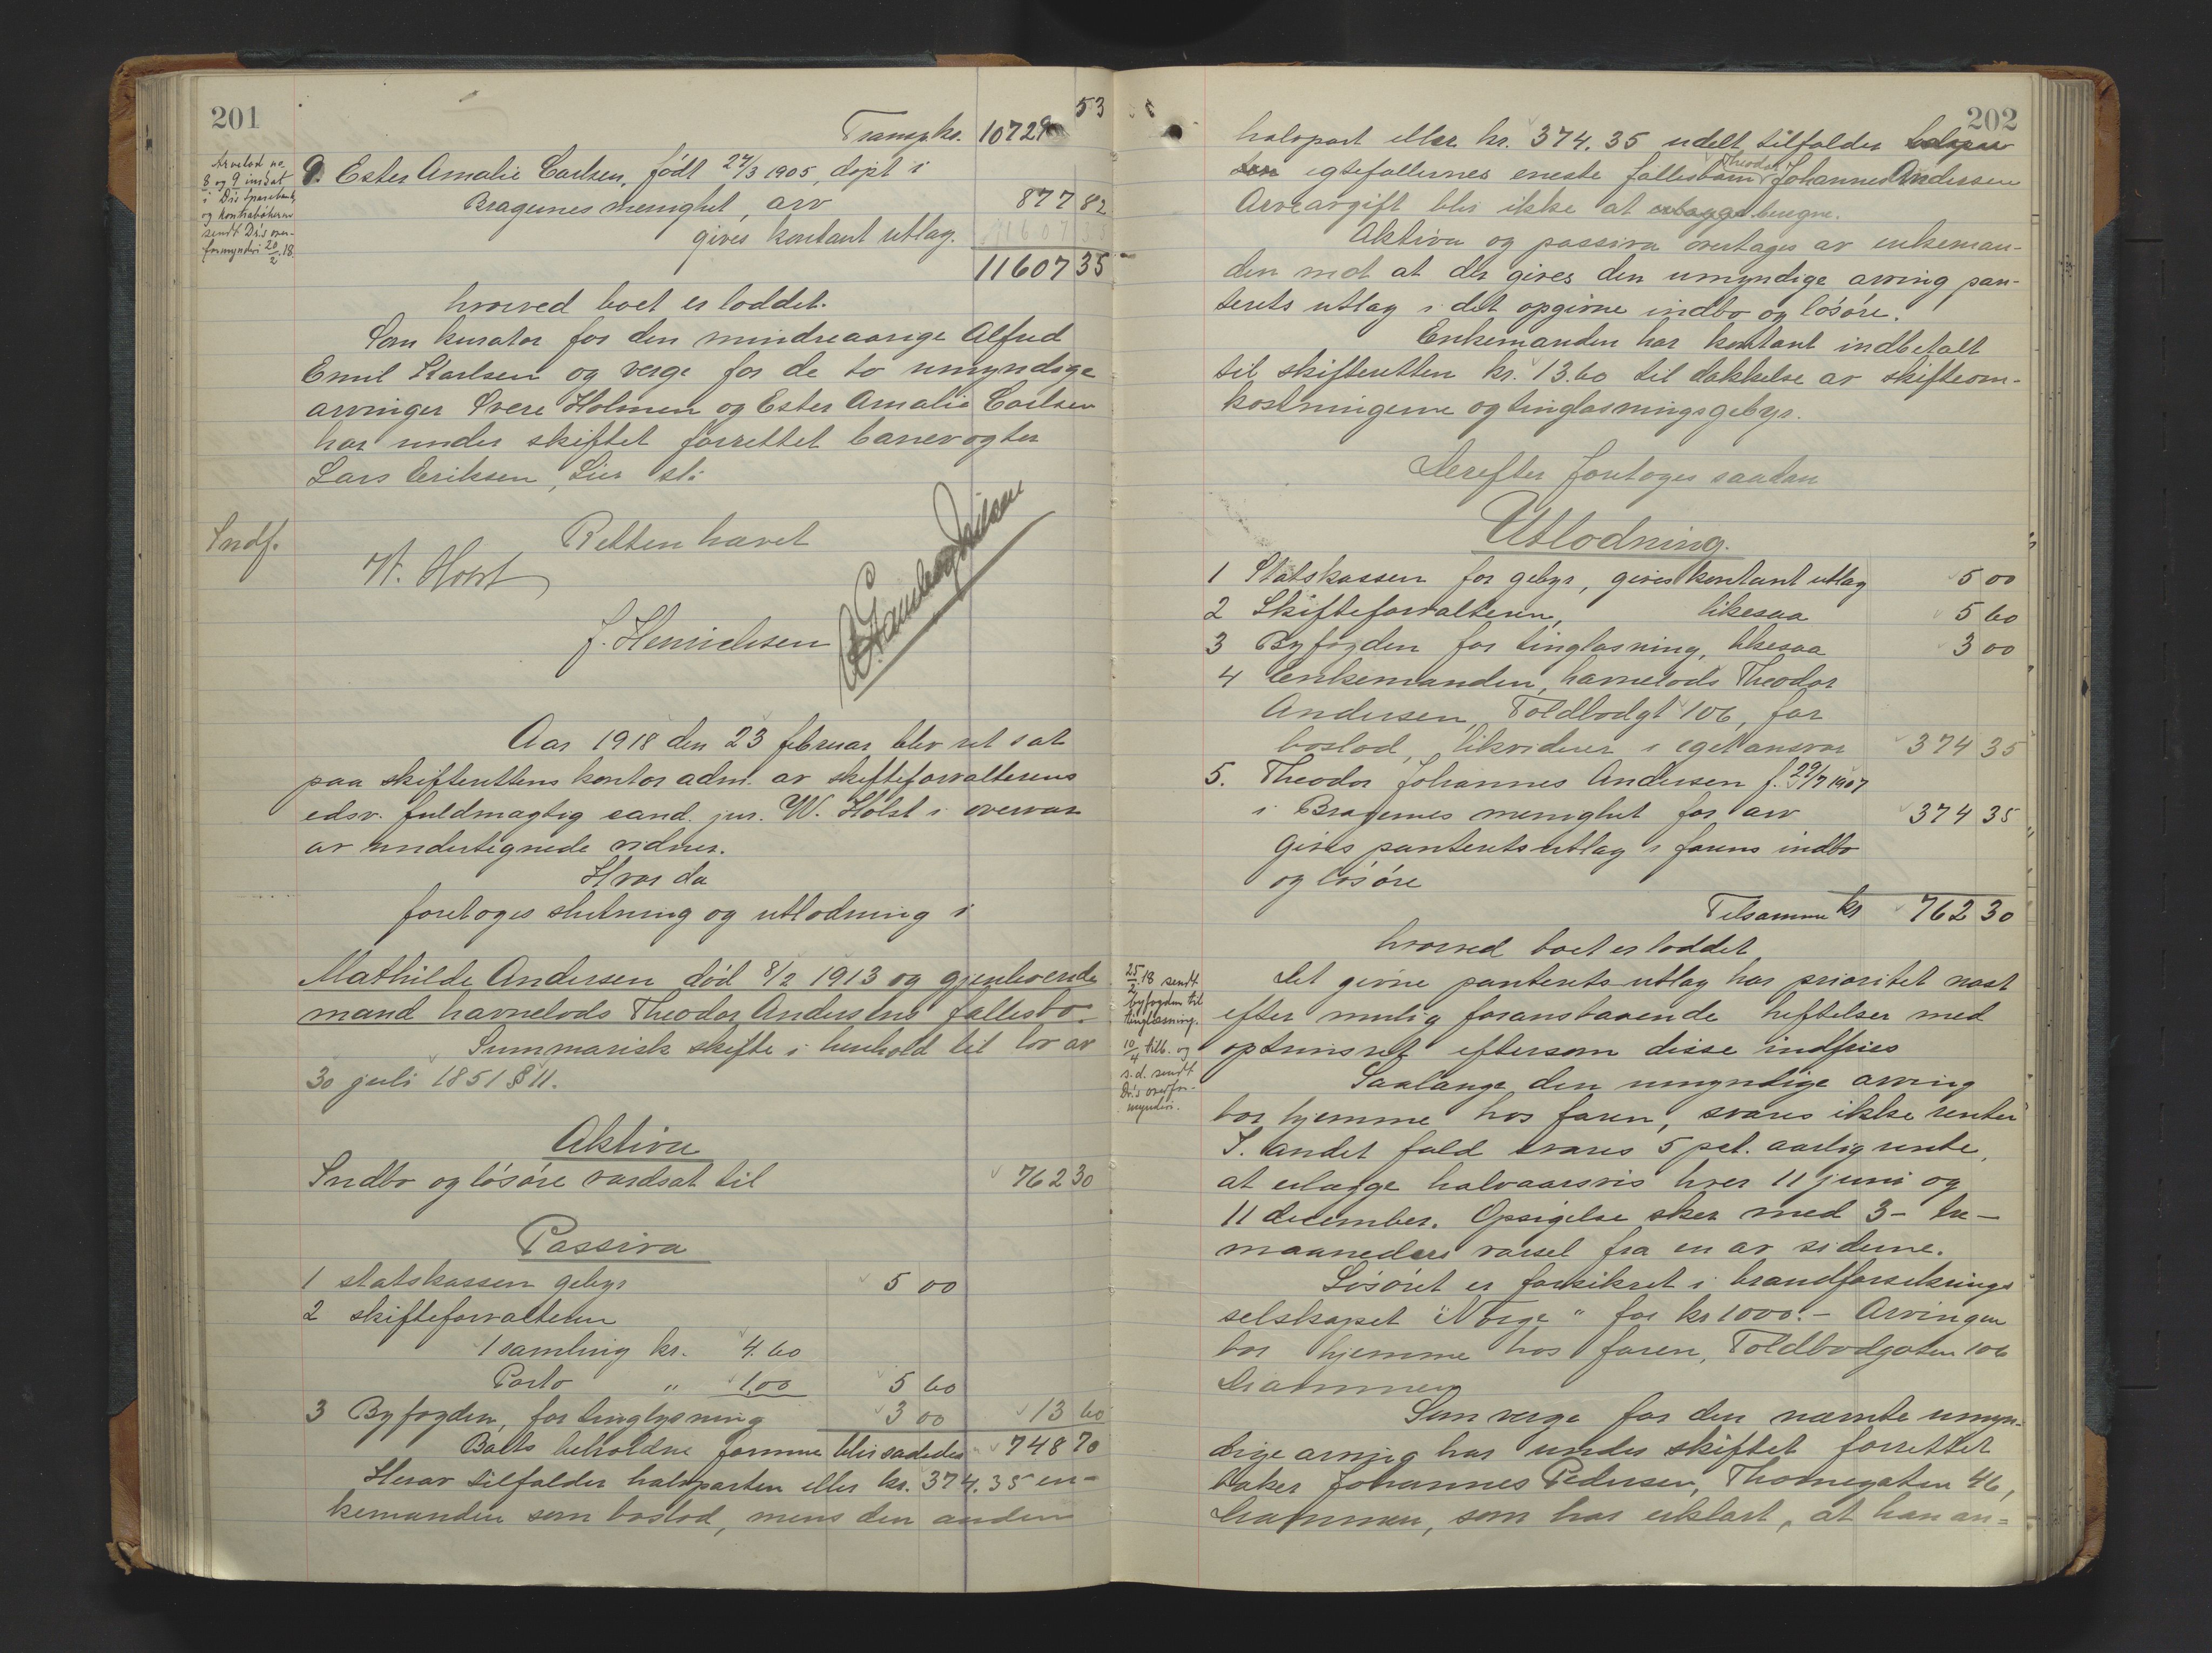 201
Transp. kr. 10729 53
Arvelod no.
8 og 9 indsat
i Dr.s Sparebank,
og kontrabøkerne
sendt Dr.s over-
formynderi 20/2 18.
9. Ester Amalie Carlsen, født 24/3 1905, døpt i
Bragernes menighet, arv 877 82
gives kontant utlæg.
11607 35
hvorved boet er loddet.
Som kurator for den mindreaarige Alfred
Emil Karlsen og verge for de to umyndige
arvinger Svere Holmen og Ester Amalie Carlsen
har under skiftet forrettet banevogter
Lars Eriksen, Lier st:
Indf.
Retten hævet
W. Holst
J. Henrichsen
Aar 1918 den 23 februar blev ret sat
paa skifterettens kontor adm. av skifteforvalterens
edsv. fuldmægtig cand. jur. W. Holst i overvær
av undertegnede vidner.
Hvor da
foretoges slutning og utlodning i
Mathilde Andersen død 8/2 1913 og gjenlevende
mand havnelods Theodor Andersens fællesbo.
Summarisk skifte i henhold til lov av
30 juli 1851 § 11.
Aktiva
Indbo og løsøre værdsat til 762 30
Passiva
1 statskassen gebyr 5 00
2 skifteforvalteren
1 samling kr. 4.60
Porto " 1.00 5 60
3 Byfogden, for tinglysning 3 00 13 60
Boets beholdne formue blir saaledes 748 70
Herav tilfalder halvparten eller kr. 374.35 en-
kemanden som boslod, mens den anden
202
halvpart eller kr. 374.35 udelt tilfalder
egtefællernes eneste fællesbarn Theodor Johannes Andersen
Arveavgift blir ikke at beregne.
Aktiva og passiva overtages av enkeman-
den mot at der gives den umyndige arving pan-
terets utlæg i det opgivne indbo og løsøre.
Enkemanden har kontant indbetalt
til skifteretten kr. 13.60 til dækkelse av skifteom-
kostningerne og tinglæsningsgebyr.
Derefter foretoges saadan
Utlodning.
1 Statskassen for gebyr, gives kontant utlæg 5 00
2 Skifteforvalteren, likesaa 5 60
3 Byfogden for tinglæsning, likesaa 3 00
4 Enkemanden, havnelods Theodor
Andersen, Toldbodgt 106, for
boslod, likviderer i eget ansvar 374 35
5. Theodor Johannes Andersen f. 29/7 1907
i Bragernes menighet for arv 374 35
gives panteretsutlæg i farens indbo
og løsøre
Tilsammen kr 762 30
hvorved boet er loddet
25/2 18 sendt
byfogden til
tinglæsning.
10/4 tilb. og
s.d. sendt
Dr.s overfor-
mynderi.
Det givne panterets-utlæg har prioritet næst
efter mulig foranstaaende heftelser med
opt­rinsret eftersom disse indfries
Saalænge den umyndige arving
bor hjemme hos faren, svares ikke renter
I andet fald svares 5 pct. aarlig rente,
at erlægge halvaarsvis hver 11 juni og
11 december. Opsigelse sker med 3- tre-
maaneders varsel fra en av siderne.
Løsøret er forsikret i brandforsikrings
selskapet "Norge" for kr 1000.- Arvingen
bor hjemme hos faren, Toldbodgaten 106
Drammen
Som verge for den nævnte umyn-
dige arving har under skiftet forrettet
baker Johannes Pedersen, Thornegaten 46,
Drammen, som har erklært, at han an=